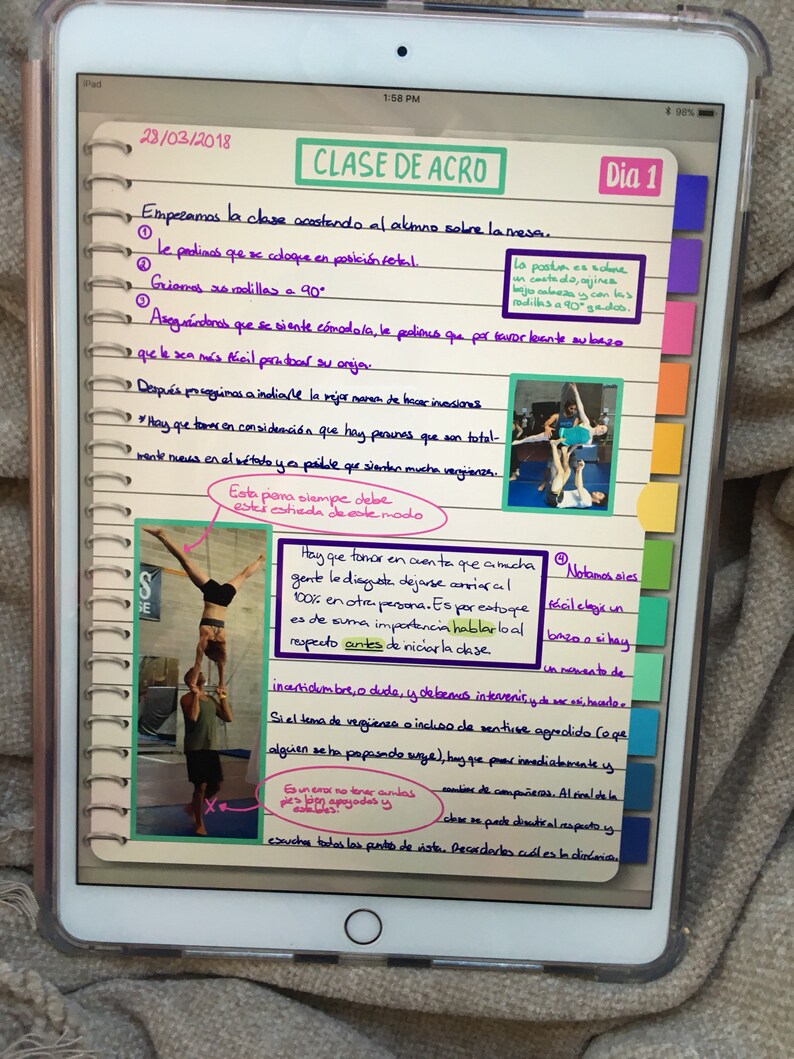 iPad
1:58 PM
98%
28/03/2018
CLASE DE ACRO
Dia 1
Empezamos la clase acostando al alumno sobre la mesa.
① Le pedimos que se coloque en posición fetal.
② Guiamos sus rodillas a 90°
La postura es sobre
un costado, cojines
bajo cabeza y con las
rodillas a 90° grados.
③ Asegurándonos que se siente cómodo/a, le pedimos que por favor levante su brazo
que le sea más fácil para tocar su oreja.
Después proseguimos a indicarle la mejor manera de hacer inversiones
*Hay que tomar en consideración que hay personas que son total-
mente nuevas en el método y es posible que sientan mucha vergüenza.
Esta pierna siempre debe
estar estirada de este modo
S
SE
Hay que tomar en cuenta que a mucha
gente le disgusta dejarse confiar al
100% en otra persona. Es por esto que
es de suma importancia hablarlo al
respecto antes de iniciar la clase.
④ Notamos si es
fácil elegir un
brazo o si hay
un momento de
incertidumbre, o duda, y debemos intervenir, y de ser así, hacerlo.
Si el tema de vergüenza o incluso de sentirse agredido (o que
alguien se ha propasado surge), hay que parar inmediatamente y
cambiar de compañeros. Al final de la
clase se puede discutir al respecto y
escuchar todos los puntos de vista. Recordarles cuál es la dinámica.
Es un error no tener ambos
pies bien apoyados y
estables.
X